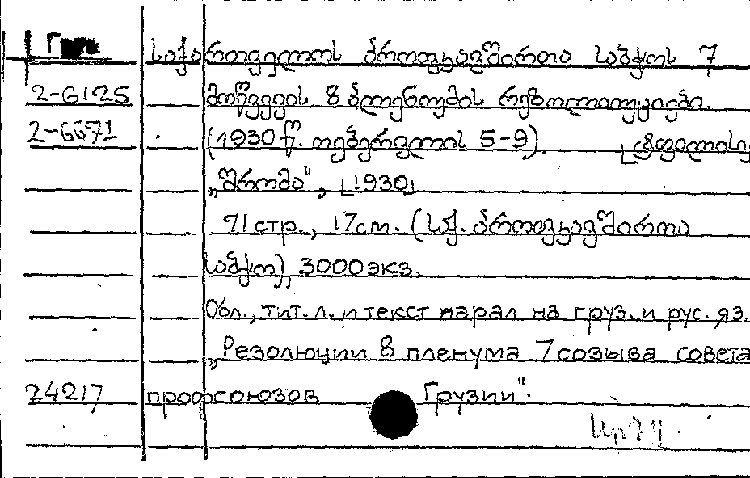 საქართველოს პროფკავშირთა საბჭოს 7
2-6125 მოწვევის 8 პლენუმის რეზოლიუციები.
2-6671 (1930 წ. თებერვლის 5-9). [ტფილისი
„შრომა", [1930]
71 стр., 17 см. (საქ. პროფკავშირთა
საბჭო), 3000 экз.
Обл., тит. л. и текст парал на груз. и рус. яз.
„Резолюции 8 пленума 7 созыва совета
24217 профсоюзов Грузии".